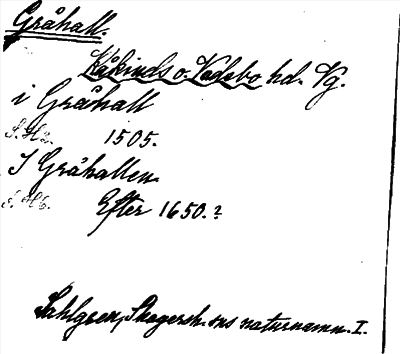 Gråhall.
Kåkinds o. Vadsbo hd. Vg.
i Gråhall
S. H2. 1505.
I Gråhallen
S. H6. Efter 1650.?
Sahlgren, Skagersh. sns naturnamn. I.